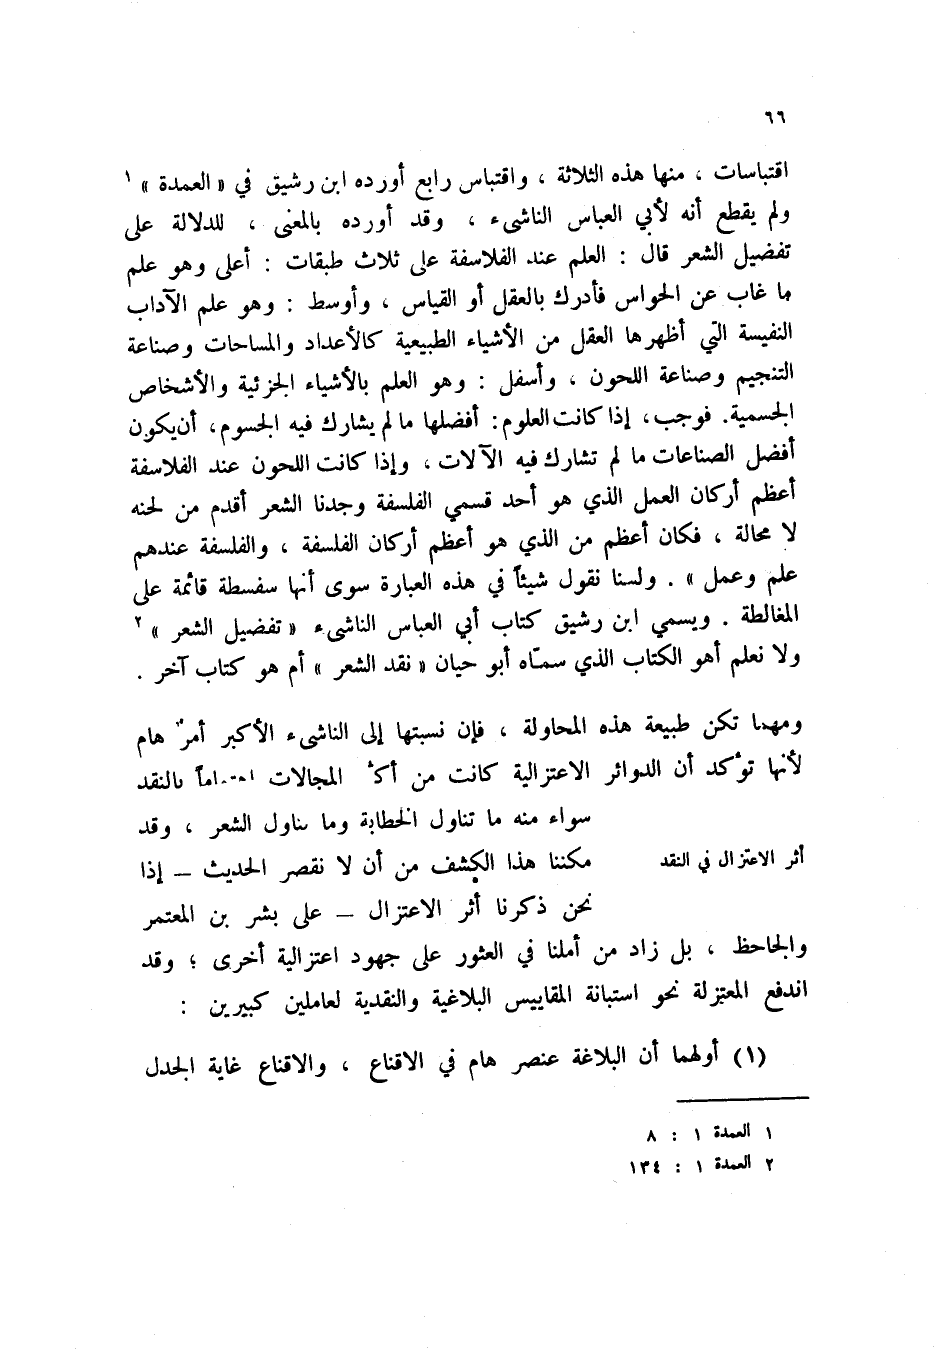 ٦٦
اقتباسات ، منها هذه الثلاثة ، واقتباس رابع أورده ابن رشيق في « العمدة » ١
ولم يقطع أنه لأبي العباس الناشىء ، وقد أورده بالمعنى ، للدلالة على
تفضيل الشعر قال : العلم عند الفلاسفة على ثلاث طبقات : أعلى وهو علم
ما غاب عن الحواس فأدرك بالعقل أو القياس ، وأوسط : وهو علم الآداب
النفيسة التي أظهرها العقل من الأشياء الطبيعية كالأعداد والمساحات وصناعة
التنجيم وصناعة اللحون ، وأسفل : وهو العلم بالأشياء الجزئية والأشخاص
الجسمية. فوجب، إذا كانت العلوم: أفضلها ما لم يشارك فيه الجسوم، أن يكون
أفضل الصناعات ما لم تشارك فيه الآلات ، وإذا كانت اللحون عند الفلاسفة
أعظم أركان العمل الذي هو أحد قسمي الفلسفة وجدنا الشعر أقدم من لحنه
لا محالة ، فكان أعظم من الذي هو أعظم أركان الفلسفة ، والفلسفة عندهم
علم وعمل » . ولسنا نقول شيئاً في هذه العبارة سوى أنها سفسطة قائمة على
المغالطة . ويسمي ابن رشيق كتاب أبي العباس الناشىء « تفضيل الشعر » ٢
ولا نعلم أهو الكتاب الذي سمّاه أبو حيان « نقد الشعر » أم هو كتاب آخر .
ومهما تكن طبيعة هذه المحاولة ، فإن نسبتها إلى الناشىء الأكبر أمرٌ هام
لأنها تؤكد أن الدوائر الاعتزالية كانت من المجالات بالنقد
سواء منه ما تناول الخطابة وما تناول الشعر ، وقد
أثر الاعتزال في النقد
مكننا هذا الكشف من أن لا نقصر الحديث – إذا
نحن ذكرنا أثر الاعتزال – على بشر بن المعتمر
والجاحظ ، بل زاد من أملنا في العثور على جهود اعتزالية أخرى ؛ وقد
اندفع المعتزلة نحو استبانة المقاييس البلاغية والنقدية لعاملين كبيرين :
(١) أولهما أن البلاغة عنصر هام في الاقناع ، والاقناع غاية الجدل
١ العمدة ١ : ٨
٢ العمدة ١ : ١٣٤